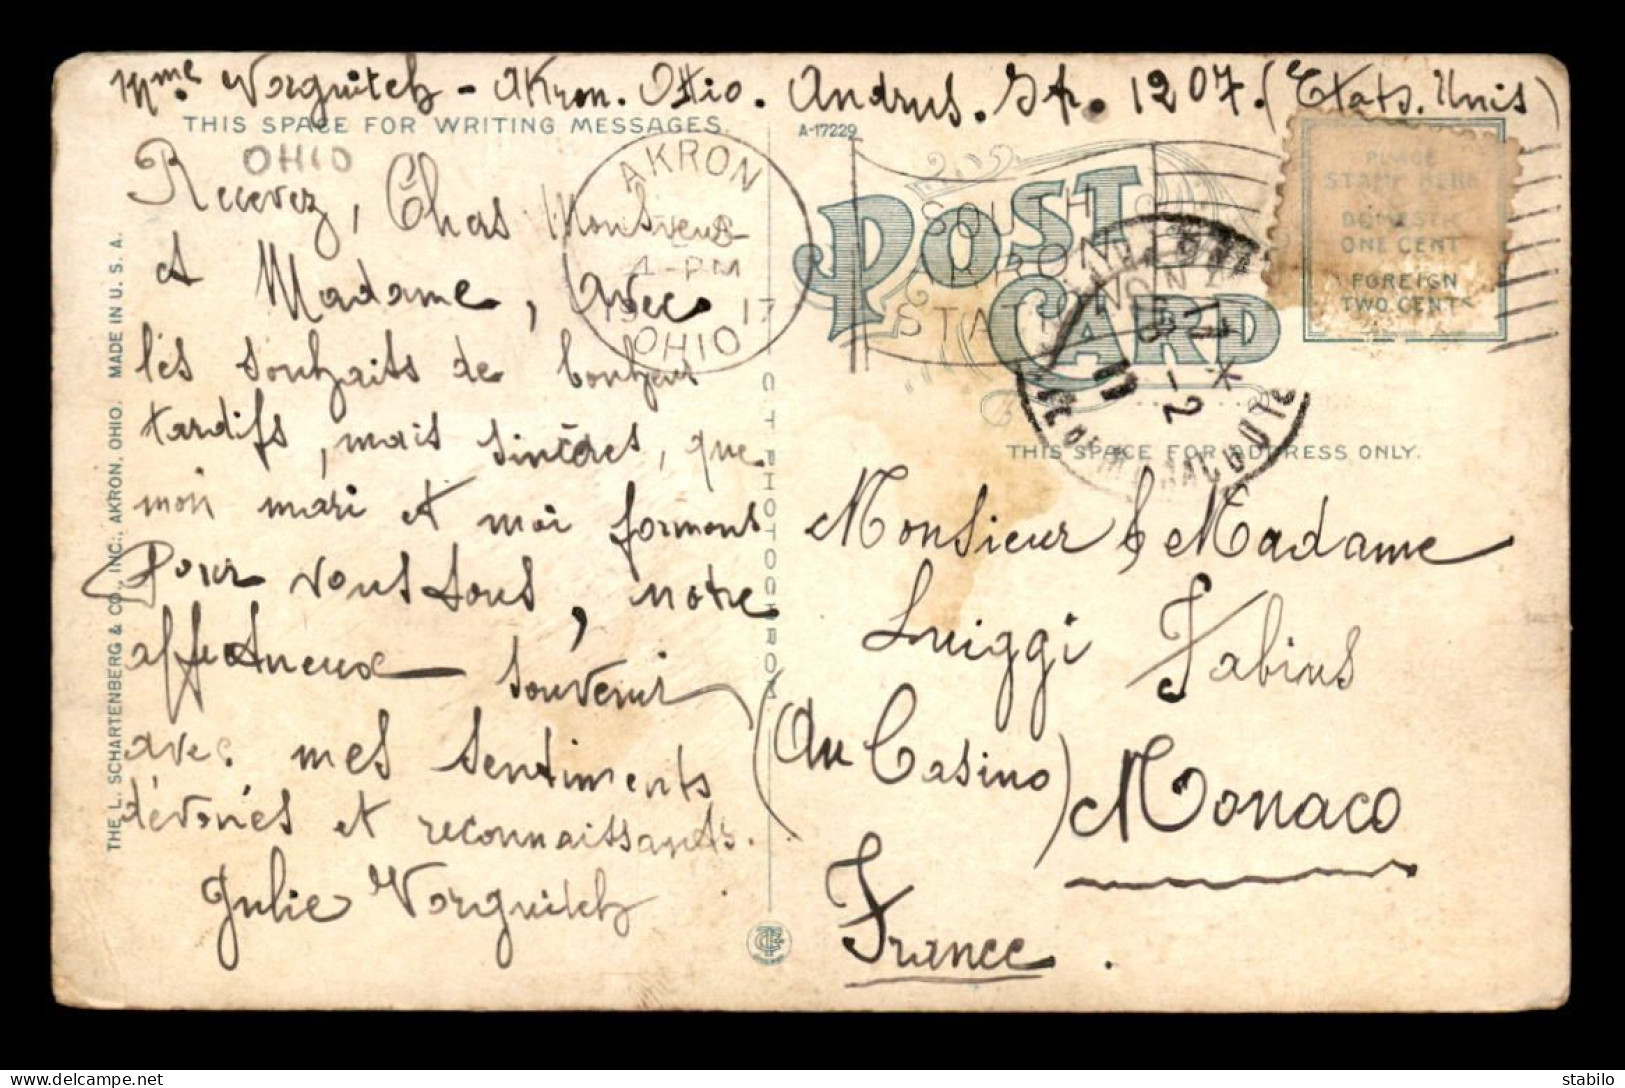 Mme. Vorguitch - Akron. Ohio. Andrus. St. 1207. (Etats. Unis)
THIS SPACE FOR WRITING MESSAGES.
A-17229
OHIO
AKRON
1-PM
19 17
OHIO
SOUTH
AKRON
STA
POST CARD
PLACE
STAMP HERE
DOMESTIC
ONE CENT
FOREIGN
TWO CENTS
Recevez, Chers Monsieur
et Madame, avec
les souhaits de bonheur
tardifs, mais sincères, que
mon mari et moi formons
Pour vous tous, notre
affectueux souvenir
avec mes sentiments
dévoués et reconnaissants.
Julie Vorguitch
THIS SPACE FOR ADDRESS ONLY.
Monsieur & Madame
Luiggi Fabius
(Au Casino) Monaco
France.
THE L. SCHARTENBERG & CO., INC., AKRON, OHIO. MADE IN U. S. A.
C T PHOTOCHROM
stabilo